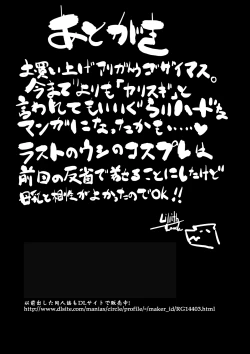 あとがき
お買い上げアリガトウゴザイマス。
今までよりも「ヤリスギ」と
言われてもいいぐらいハードな
マンガになったかも……♥
ラストのウシのコスプレは
前回の反省で着せることにしたけど
母乳と相性がよかったのでOK!!
以前出した同人誌もDLサイトで販売中!
http://www.dlsite.com/maniax/circle/profile/=/maker_id/RG14403.html